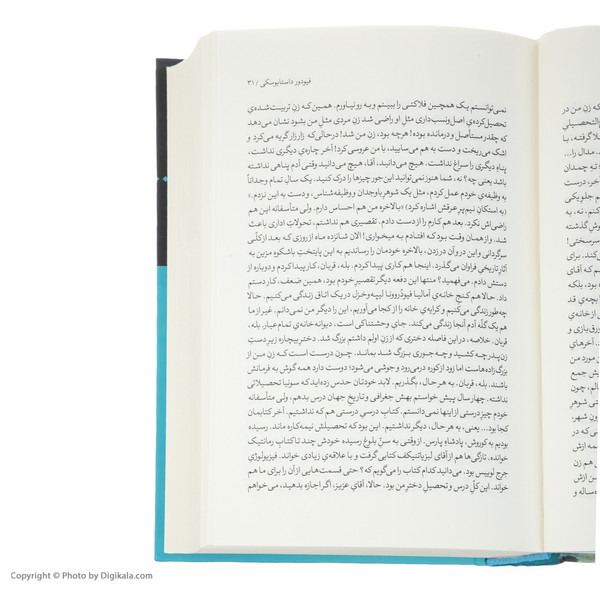 فیودور داستایوسکی / ۳۱
نمی‌توانستم یک همچین فلاکتی را ببینم و به رو نیاورم. همین که زنِ تربیت‌شده‌ی
تحصیل‌کرده‌ی اصل‌ونسب‌داری مثل او راضی شد زنِ مردی مثلِ من بشود نشان می‌دهد
که چقدر مستأصل و درمانده بوده! هرچه بود، زنِ من شد! درحالی‌که زار زار گریه می‌کرد و
اشک می‌ریخت و دست به هم می‌سایید، با من عروسی کرد! آخر چاره‌ی دیگری نداشت،
پناهِ دیگری را سراغ نداشت، هیچ می‌دانید، آقا، هیچ می‌دانید وقتی آدم پناهی نداشته
باشد یعنی چه؟ نه، شما هنوز نمی‌توانید این‌جور چیزها را درک کنید. یک سالِ تمام وجداناً
به وظیفه‌ی خودم عمل کردم، مثل یک شوهرِ باوجدان و وظیفه‌شناس، و به این نزدم.»
(به استکانِ نیم‌پرِ عرقش اشاره کرد) «بالاخره من هم احساس دارم. ولی متأسفانه این هم
راضی‌اش نکرد. بعد هم کارم را از دست دادم. تقصیری هم نداشتم، تحولاتِ اداری باعث
شد. و از همان وقت بود که افتادم به میخواری! الان شانزده ماه از روزی که بعد از کلّی
سرگردانی و این در و آن در زدن، بالاخره خودمان را رساندیم به این پایتختِ باشکوهِ مزین به
آثارِ تاریخی فراوان می‌گذرد. اینجا هم کاری پیدا کردم. بله، قربان، کار پیدا کردم و دوباره از
دستش دادم. می‌فهمید؟ منتها این دفعه دیگر تقصیرِ خودم بود، همین ضعف، کار دستم
داد. حالا هم کنجِ خانه‌ی آمالیا فیودُرونا لیپه‌وخزل در یک اتاق زندگی می‌کنیم. حالا
چه‌طور زندگی می‌کنیم و کرایه‌ی خانه را از کجا می‌آوریم، این را دیگر من نمی‌دانم. غیر از ما
هم یک گلّه آدم آنجا زندگی می‌کند. جای وحشتناکی است، دیوانه‌خانه‌ی تمام‌عیار. بله،
قربان. خلاصه، در این فاصله دختری که از زنِ اولم داشتم بزرگ شد. دخترِ بیچاره زیرِ دستِ
زن‌پدر چه کشید و چه جوری بزرگ شد بماند. چون درست است که زنِ من از
بزرگ‌زاده‌هاست اما زود از کوره درمی‌رود و جوشی می‌شود؛ دوست دارد همه گوش به فرمانش
باشند. بله، قربان. به هر حال، بگذریم. لابد خودتان حدس زده‌اید که سونیا تحصیلاتی
نداشته. چهار سال پیش خواستم بهش جغرافی و تاریخِ جهان درس بدهم، ولی متأسفانه
خودم چیزِ درستی از اینها نمی‌دانستم، کتابِ درسی درستی هم که نداشتیم. آخر کتابمان
کجا بود... یعنی، به هر حال، دیگر نداشتیم. این بود که تحصیلش نیمه‌کاره ماند. رسیده
بودیم به کوروش، پادشاهِ پارس. از وقتی به سنِ بلوغ رسیده خودش چند تا کتابِ رمانتیک
خوانده. تازگی‌ها هم از آقای لبزیاتنیکف کتابی گرفت و با علاقه‌ی زیادی خواند. فیزیولوژیِ
جرج لوییس بود. می‌دانید کدام کتاب را می‌گویم که؟ حتی قسمت‌هایی از آن را برای ما هم
خواند. این کلّ درس و تحصیلِ دخترِ من بود. حالا، آقای عزیز، اگر اجازه بدهید، می‌خواهم
Copyright © Photo by Digikala.com